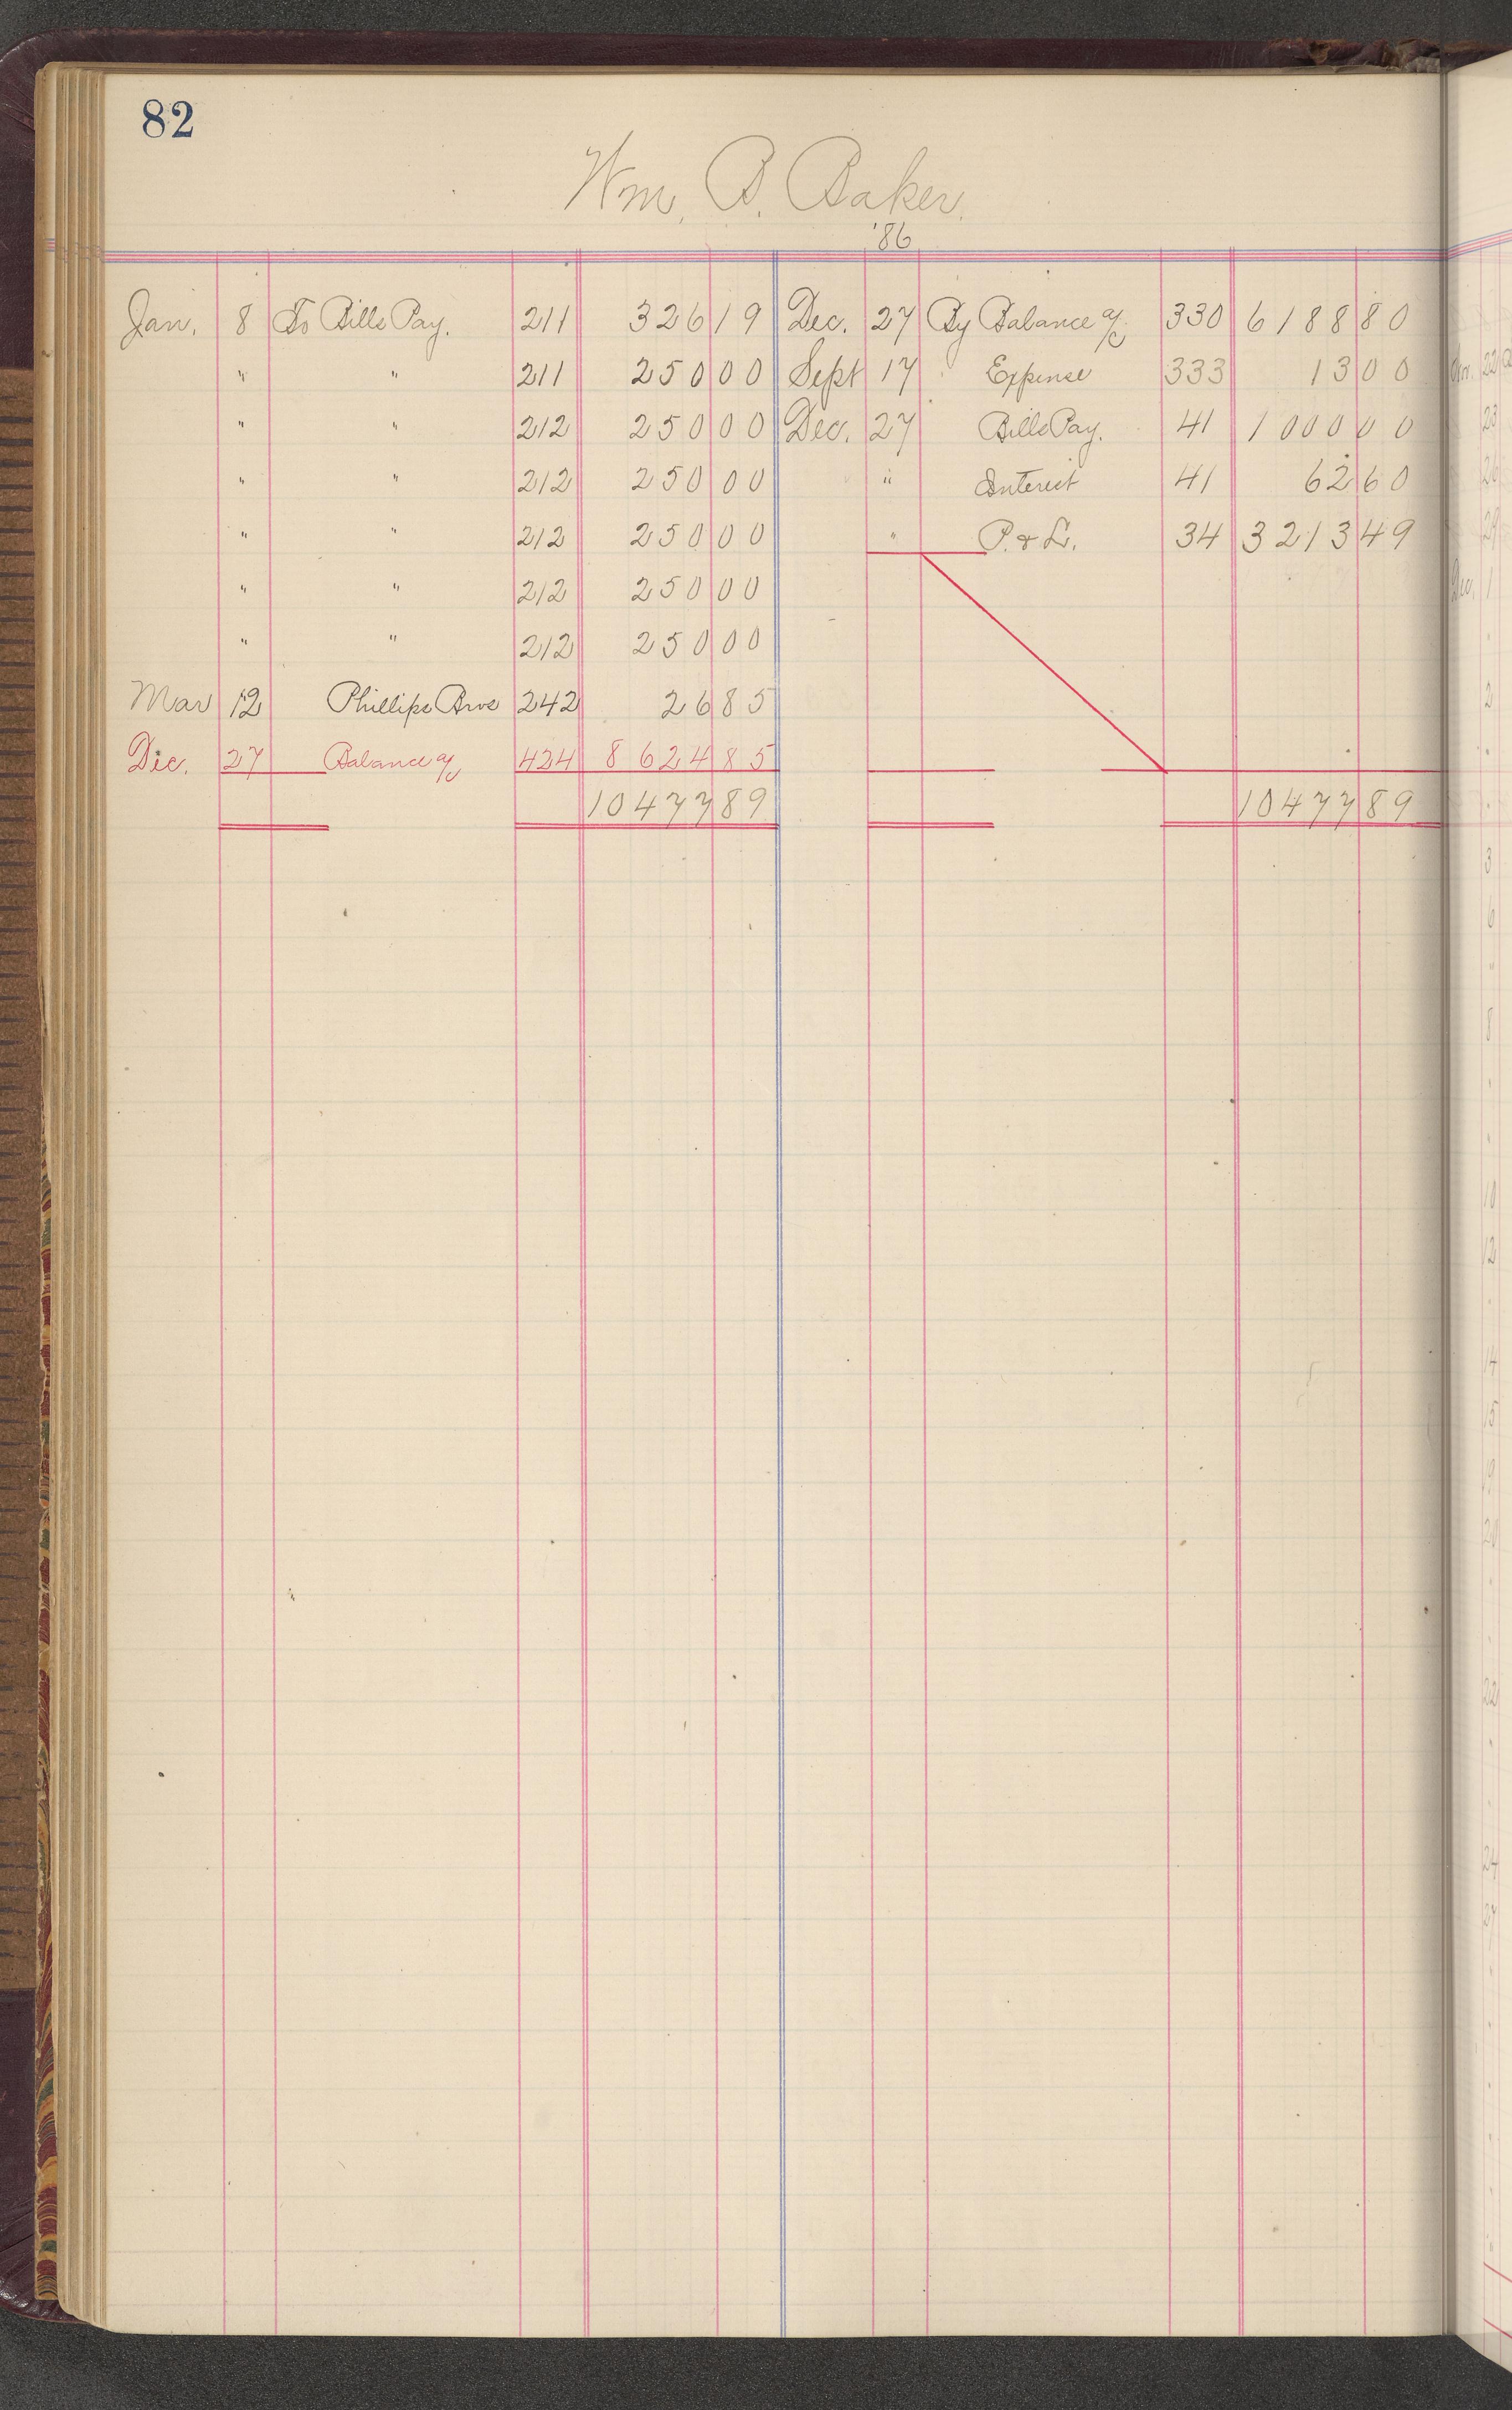 82
Wm. B. Baker.
'86
Jan. 8 To Bills Pay. 211 326 19 Dec. 27 By Balance a/c 330 6188 80
" " 211 250 00 Sept 17 Expense 333 13 00
" " 212 250 00 Dec. 27 Bills Pay. 41 1000 00
" " 212 250 00 " Interest 41 62 60
" " 212 250 00 " P. & L. 34 3213 49
" " 212 250 00
" " 212 250 00
Mar 12 Phillips Bros 242 26 85
Dec. 27 Balance a/c 424 8624 85
10477 89 10477 89
22
23
26
29
Dec. 1
2
3
6
8
10
12
14
15
19
20
22
24
27